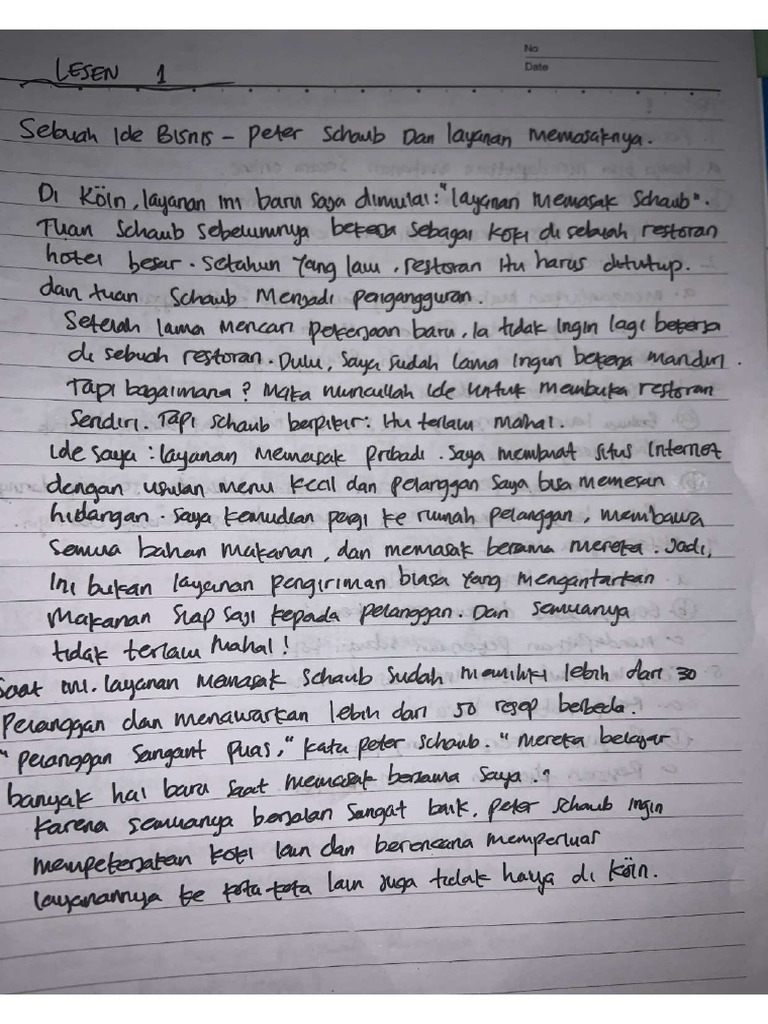 No
Date
LESEN 1
Sebuah Ide Bisnis - Peter Schaub Dan layanan memasaknya.
Di Köln, layanan ini baru saja dimulai: "layanan memasak Schaub".
Tuan Schaub sebelumnya bekerja sebagai koki di sebuah restoran
hotel besar. Setahun yang lalu, restoran itu harus ditutup.
dan tuan Schaub Menjadi pengangguran.
Setelah lama mencari pekerjaan baru, Ia tidak ingin lagi bekerja
di sebuah restoran. Dulu, saya sudah lama ingin bekerja mandiri.
Tapi bagaimana? Maka muncullah ide untuk membuka restoran
Sendiri. Tapi Schaub berpikir: Itu terlalu mahal.
Ide saya: layanan memasak pribadi. Saya membuat situs Internet
dengan usulan menu kecil dan pelanggan saya bisa memesan
hidangan. Saya kemudian pergi ke rumah pelanggan, membawa
semua bahan makanan, dan memasak bersama mereka. Jadi,
Ini bukan layanan pengiriman biasa yang mengantarkan
Makanan siap saji kepada pelanggan. Dan semuanya
tidak terlalu mahal!
Saat ini. layanan memasak schaub sudah memiliki lebih dari 30
Pelanggan dan menawarkan lebih dari 50 resep berbeda.
"Pelanggan Sangant puas," kata Peter Schaub. "Mereka belajar
banyak hal baru saat memasak bersama saya."
Karena semuanya berjalan sangat baik, Peter Schaub ingin
mempekerjakan koki lain dan berencana memperluas
layanannya ke kota-kota lain juga tidak hanya di Köln.